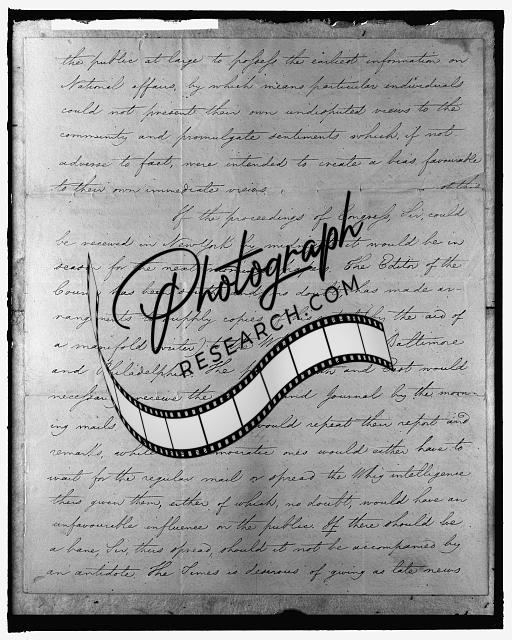 the public at large to possess the earliest information on
National affairs, by which means particular individuals
could not present their own undisputed views to the
community and promulgate sentiments which, if not
adverse to fact, were intended to create a bias favourable
to their own immediate
If the proceedings of Congress, Sir, could
be received in New York by it would be in
season for the next The Editor of the
has made ar-
rangements supply copies by the aid of
a manifold writer Baltimore
and Philadelphia. The and would
necessary receive the and Journal by the morn-
ing mails would repeat their report and
remarks, while ones would either have to
wait for the regular mail or spread the Whig intelligence
thus given them, either of which, no doubt, would have an
unfavourable influence on the public. If there should be
a bane, Sir, thus spread, should it not be accompanied by
an antidote. The Times is desirous of giving as late news
Photograph
RESEARCH.COM